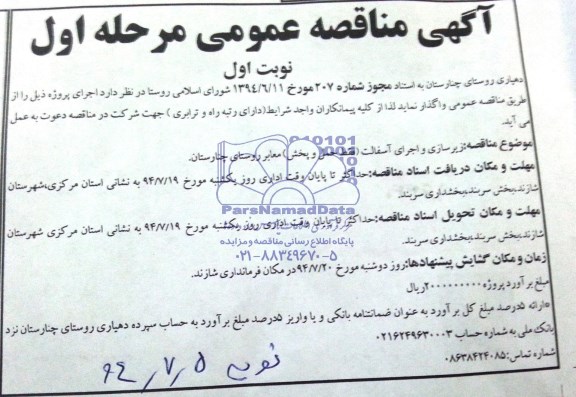 آگهی مناقصه عمومی مرحله اول
نوبت اول
دهیاری روستای چنارستان به استناد مجوز شماره ۲۰۷مورخ ۱۳۹٤/٦/۱۱ شورای اسلامی روستا در نظر دارد اجرای پروژه ذیل را از
طریق مناقصه عمومی واگذار نماید لذا از کلیه پیمانکاران واجد شرایط(دارای رتبه راه و ترابری ) جهت شرکت در مناقصه دعوت به عمل
می آید.
موضوع مناقصه:زیرسازی و اجرای آسفالت (فقط حمل و پخش) معابر روستای چنارستان.
مهلت و مکان دریافت اسناد مناقصه:حداکثر تا پایان وقت اداری روز یکشنبه مورخ ۹٤/۷/۱۹ به نشانی استان مرکزی،شهرستان
شازند،بخش سربند،بخشداری سربند.
مهلت و مکان تحویل اسناد مناقصه:حداکثر تا پایان وقت اداری روز یکشنبه مورخ ۹٤/۷/۱۹ به نشانی استان مرکزی شهرستان
شازند،بخش سربند،بخشداری سربند.
ParsNamadData
پایگاه اطلاع رسانی مناقصه و مزایده
۰۲۱-۸۸۳۴۹۶۷۰-۵
زمان و مکان گشایش پیشنهادها:روز دوشنبه مورخ ۹٤/۷/۲۰در مکان فرمانداری شازند.
مبلغ برآورد پروژه:۲۰۰۰۰۰۰۰۰۰ریال
*ارائه ۵درصد مبلغ کل بر آورد به عنوان ضمانتنامه بانکی و یا واریز ۵درصد مبلغ بر آورد به حساب سپرده دهیاری روستای چنارستان نزد
بانک ملی به شماره حساب ۰۲۱٦۲٤۹٦۳۰۰۰۳
شماره تماس:۰۸٦۳۸٤۲٤۰۸۵
۹٤/۷/۵